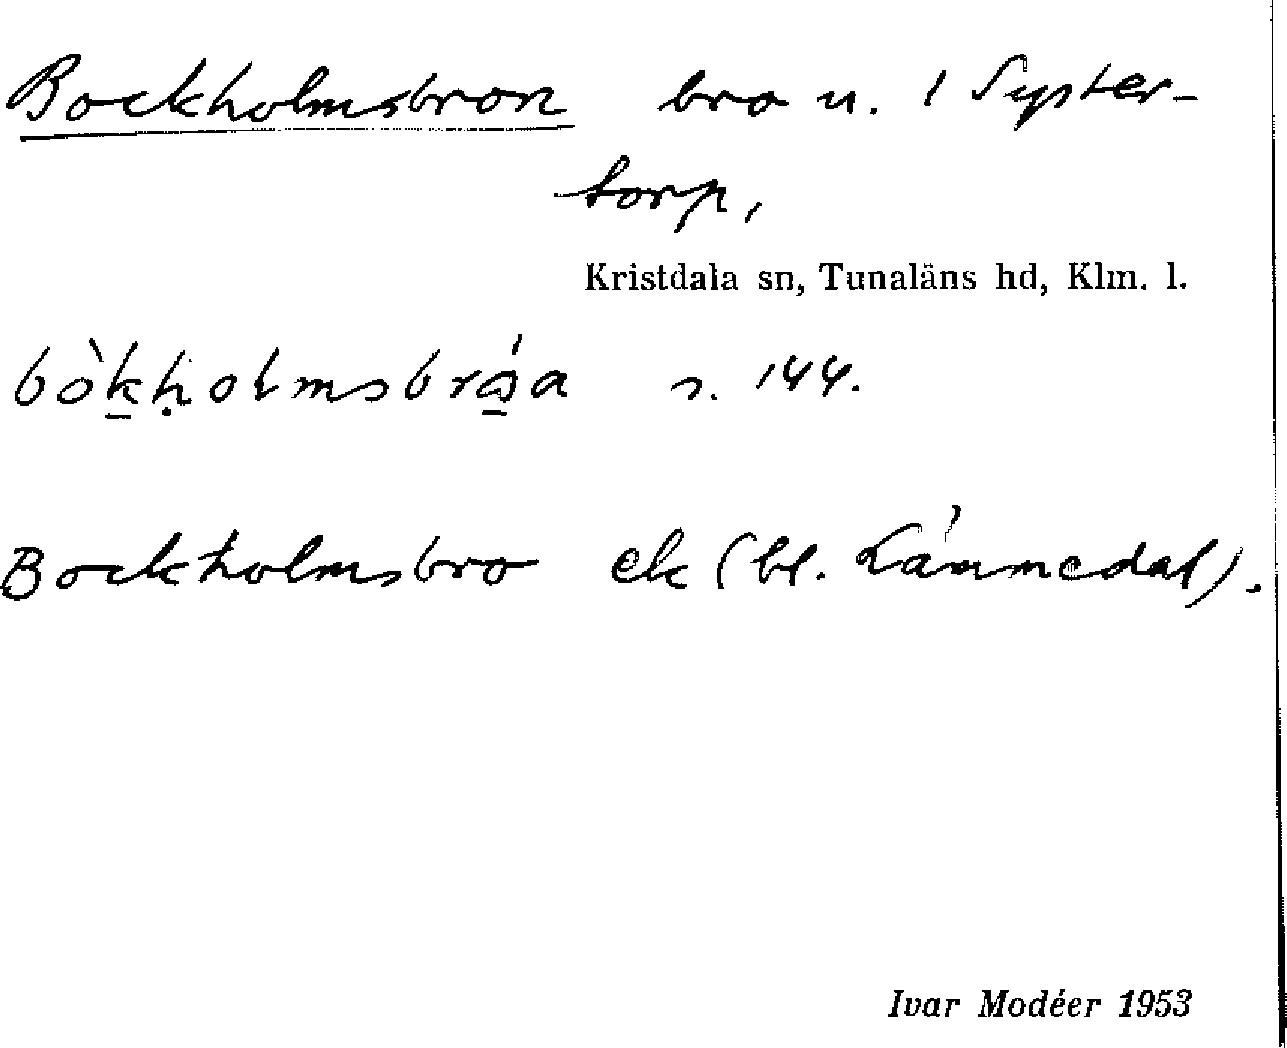 Bockholmsbron bro u. 1 Syster-
torp,
Kristdala sn, Tunaläns hd, Klm. l.
bòk̠ḥolmsbrǻ̠a s. 144.
Bockholmsbro ek (bl. Lánmedal).
Ivar Modéer 1953